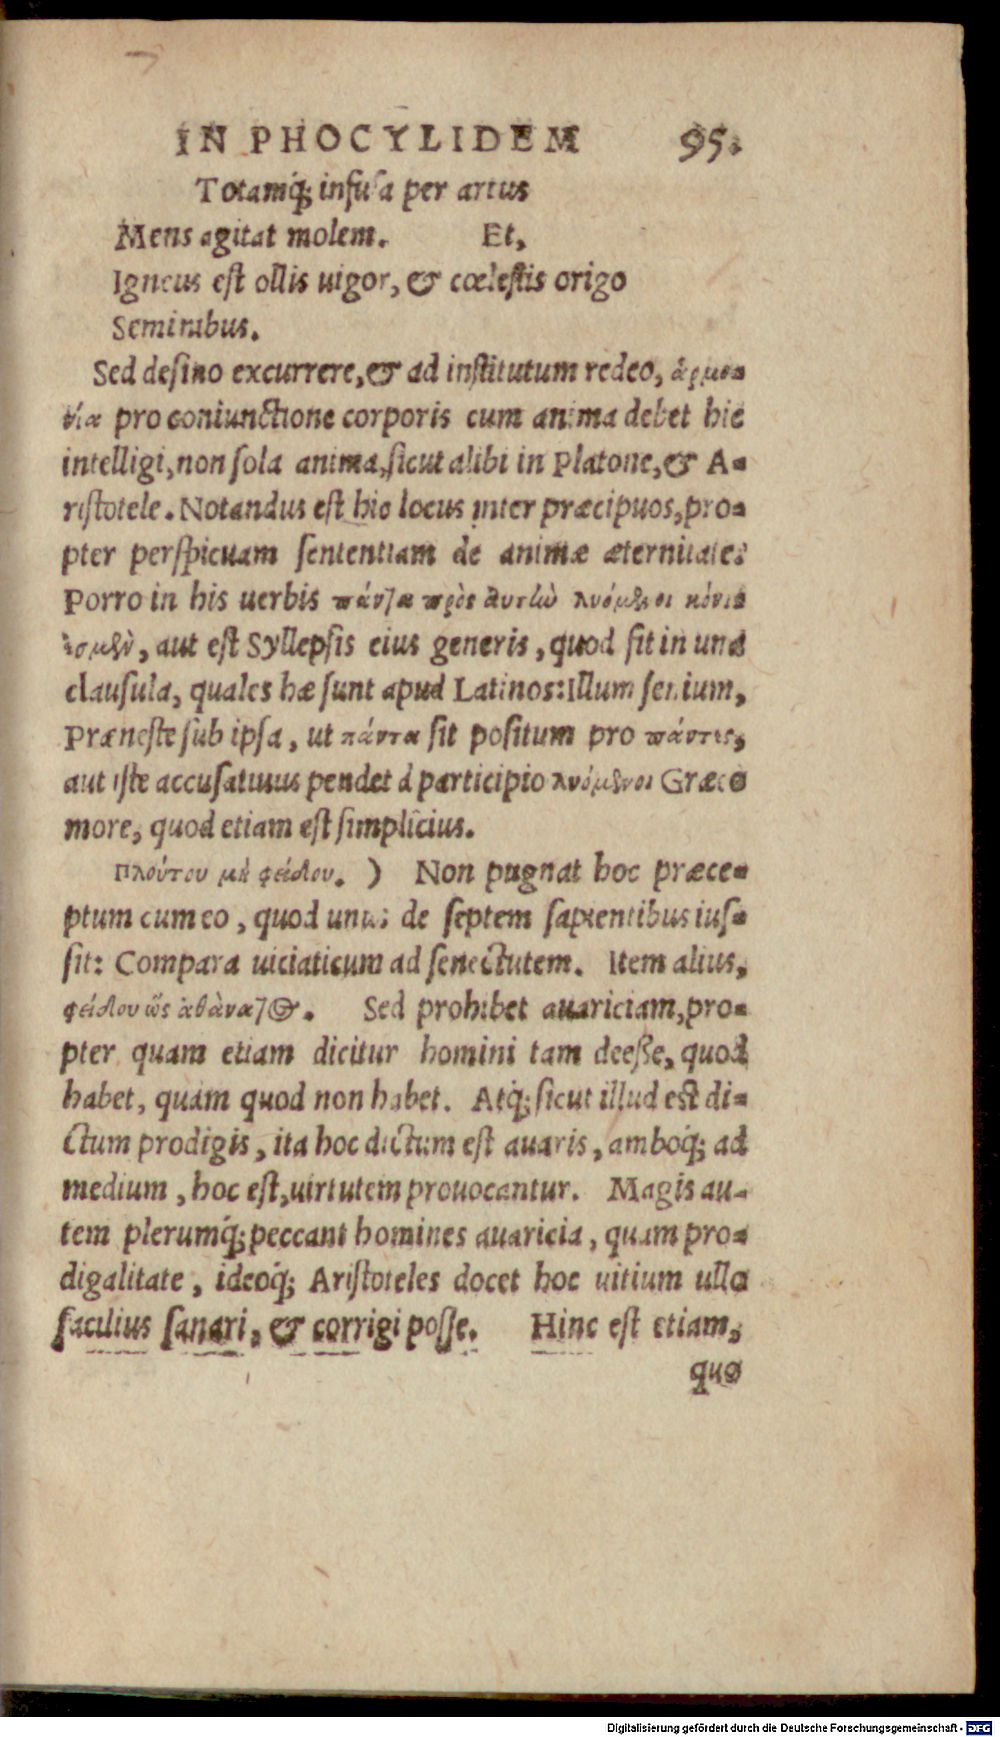 IN PHOCYLIDEM 95.
Totamq́; infusa per artus
Mens agitat molem. Et,
Igneus est ollis uigor, & cœlestis origo
Seminibus.
Sed desino excurrere, & ad institutum redeo, ἁρμο-
νία pro coniunctione corporis cum anima debet hic
intelligi, non sola anima, sicut alibi in Platone, & A-
ristotele. Notandus est hic locus inter præcipuos, pro-
pter perspicuam sententiam de animæ æternitate:
Porro in his uerbis πάντα πρὸς ἀυτὼ λυόμενοι κόνις
ἐσμὲν, aut est Syllepsis eius generis, quod fit in una
clausula, quales hæ sunt apud Latinos: Illum senium,
Præneste sub ipsa, ut πάντα sit positum pro πάντες,
aut iste accusatiuus pendet à participio λυόμενοι Græco
more, quod etiam est simplicius.
Πλούτου μὴ φείδου. ) Non pugnat hoc præce-
ptum cum eo, quod unus de septem sapientibus ius-
sit: Compara uiciaticum ad senectutem. Item alius,
φείδου ὡς ἀθάνατος. Sed prohibet auariciam, pro-
pter quam etiam dicitur homini tam deesse, quod
habet, quàm quod non habet. Atq́; sicut illud est di-
ctum prodigis, ita hoc dictum est auaris, amboq́; ad
medium, hoc est, uirtutem prouocantur. Magis au-
tem plerumq́; peccant homines auaricia, quam pro-
digalitate, ideoq́; Aristoteles docet hoc uitium ullo
facilius sanari, & corrigi posse. Hinc est etiam,
quo
Digitalisierung gefördert durch die Deutsche Forschungsgemeinschaft - DFG